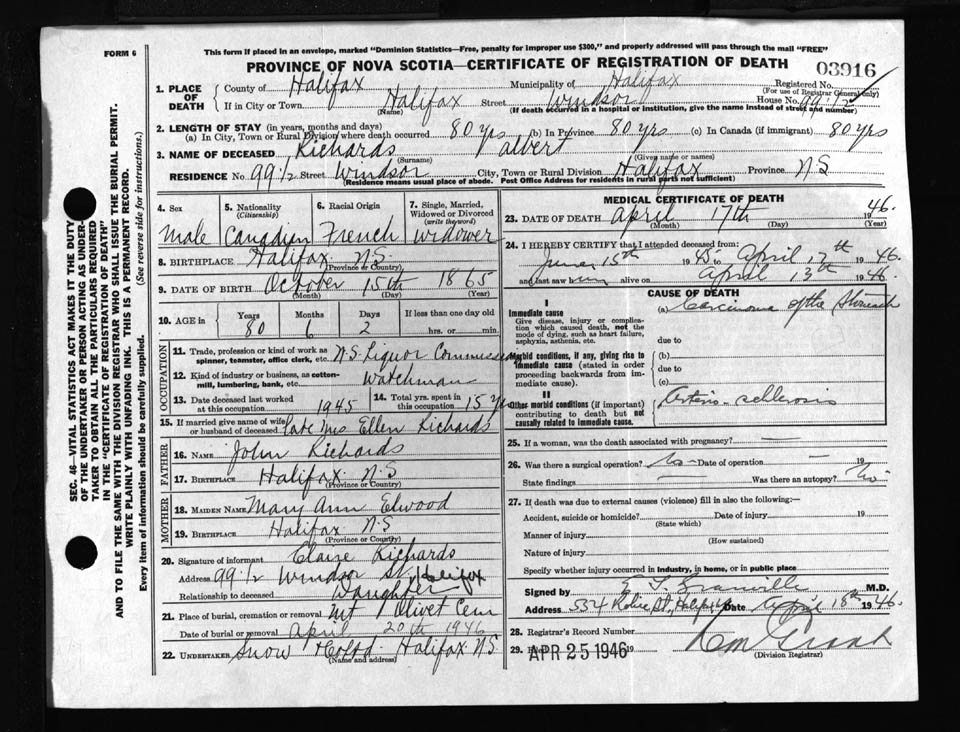 FORM 6
This form if placed in an envelope, marked "Dominion Statistics—Free, penalty for improper use $300," and properly addressed will pass through the mail "FREE"
PROVINCE OF NOVA SCOTIA—CERTIFICATE OF REGISTRATION OF DEATH
03916
1. PLACE OF DEATH
County of Halifax Municipality of Halifax Registered No.
(For use of Registrar General only)
If in City or Town Halifax Street Windsor House No. 99 1/2
(Name) (If death occurred in a hospital or institution, give the name instead of street and number)
2. LENGTH OF STAY (in years, months and days)
(a) In City, Town or Rural Division where death occurred 80 yrs (b) In Province 80 yrs (c) In Canada (if immigrant) 80 yrs
3. NAME OF DECEASED Richards Albert
(Surname) (Given name or names)
RESIDENCE No 99 1/2 Street Windsor City, Town or Rural Division Halifax Province N.S
(Residence means usual place of abode. Post Office Address for residents in rural parts not sufficient)
4. Sex 5. Nationality (Citizenship) 6. Racial Origin 7. Single, Married, Widowed or Divorced (write the word)
Male Canadian French Widower
8. BIRTHPLACE Halifax N.S.
(Province or Country)
9. DATE OF BIRTH October 15th 1865
(Month) (Day) (Year)
10. AGE in Years Months Days If less than one day old
80 6 2 hrs. or min.
OCCUPATION
11. Trade, profession or kind of work as spinner, teamster, office clerk, etc. N.S. Liquor Commission
12. Kind of industry or business, as cotton-mill, lumbering, bank, etc. Watchman
13. Date deceased last worked at this occupation 1945 14. Total yrs. spent in this occupation 15 yrs
15. If married give name of wife or husband of deceased Late Mrs Ellen Richards
FATHER
16. NAME John Richards
17. BIRTHPLACE Halifax N.S
(Province or Country)
MOTHER
18. MAIDEN NAME Mary Ann Elwood
19. BIRTHPLACE Halifax N.S
(Province or Country)
20. Signature of informant Claire Richards
Address 99 1/2 Windsor St. Halifax
Relationship to deceased Daughter
21. Place of burial, cremation or removal Mt Olivet Cem
Date of burial or removal April 20th 1946
22. UNDERTAKER Snow & Co Ltd. Halifax N.S
(Name and address)
MEDICAL CERTIFICATE OF DEATH
23. DATE OF DEATH April 17th 1946.
(Month) (Day) (Year)
24. I HEREBY CERTIFY that I attended deceased from:
June 15th 1945 to April 17th 1946.
and last saw him alive on April 13th 1946
CAUSE OF DEATH
I
Immediate cause
Give disease, injury or complication which caused death, not the mode of dying, such as heart failure, asphyxia, asthenia, etc.
(a) Carcinoma of the Stomach
due to
Morbid conditions, if any, giving rise to immediate cause (stated in order proceeding backwards from immediate cause).
(b)
due to
(c)
II
Other morbid conditions (if important) contributing to death but not causally related to immediate cause.
Arterio-sclerosis
25. If a woman, was the death associated with pregnancy? —
26. Was there a surgical operation? No Date of operation — 19
State findings — Was there an autopsy? No
27. If death was due to external causes (violence) fill in also the following:—
Accident, suicide or homicide? Date of injury 19
(State which)
Manner of injury
(How sustained)
Nature of injury
Specify whether injury occurred in industry, in home, or in public place
Signed by E. F. Granville M.D.
Address 554 Robie St, Halifax Date April 18th 1946.
28. Registrar's Record Number
29. APR 25 1946 19
(Division Registrar)
SEC. 46—VITAL STATISTICS ACT MAKES IT THE DUTY OF THE UNDERTAKER OR PERSON ACTING AS UNDERTAKER TO OBTAIN ALL THE PARTICULARS REQUIRED IN THE "CERTIFICATE OF REGISTRATION OF DEATH" AND TO FILE THE SAME WITH THE DIVISION REGISTRAR WHO SHALL ISSUE THE BURIAL PERMIT.
WRITE PLAINLY WITH UNFADING INK. THIS IS A PERMANENT RECORD.
Every item of information should be carefully supplied. (See reverse side for instructions.)